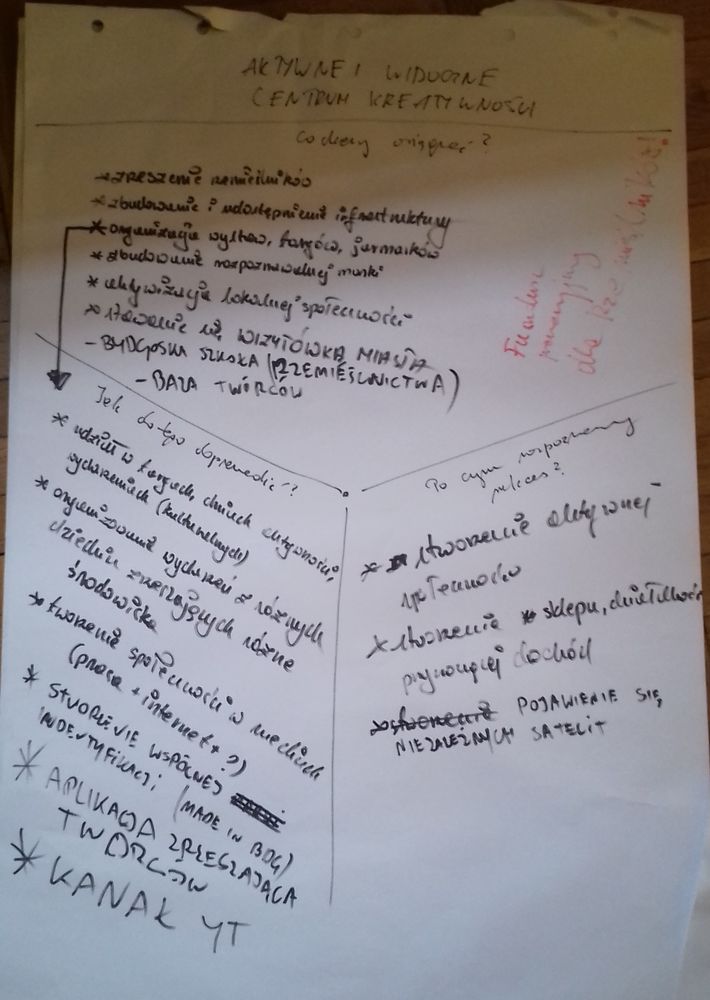 AKTYWNE I WIDOCZNE
CENTRUM KREATYWNOŚCI
Co chcemy osiągnąć?
*zrzeszenie rzemieślników
*zbudowanie i udostępnienie infrastruktury
*organizacja wystaw, targów, jarmarków
*zbudowanie rozpoznawalnej marki
*aktywizacja lokalnej społeczności
*stawanie się WIZYTÓWKĄ MIASTA
- BYDGOSKA SZKOŁA (RZEMIEŚLNICTWA)
- BAZA TWÓRCÓW
Fundusz
dla rzemieślników!
Jak do tego doprowadzić?
* udział w targach, dniach aktywności,
wydarzeniach (kulturalnych)
* organizowanie wydarzeń z różnych
dziedzin zrzeszających różne
środowiska
* tworzenie społeczności w mediach
(prasa + internet + ?)
* STWORZENIE WSPÓLNEJ
INDENTYFIKACJI (MADE IN BDG)
* APLIKACJA ZRZESZAJĄCA
TWÓRCÓW
* KANAŁ YT
Po czym rozpoznamy
sukces?
* stworzenie aktywnej
społeczności
* stworzenie sklepu, działalności
przynoszącej dochód
* POJAWIENIE SIĘ
NIEZALEŻNYCH SATELIT